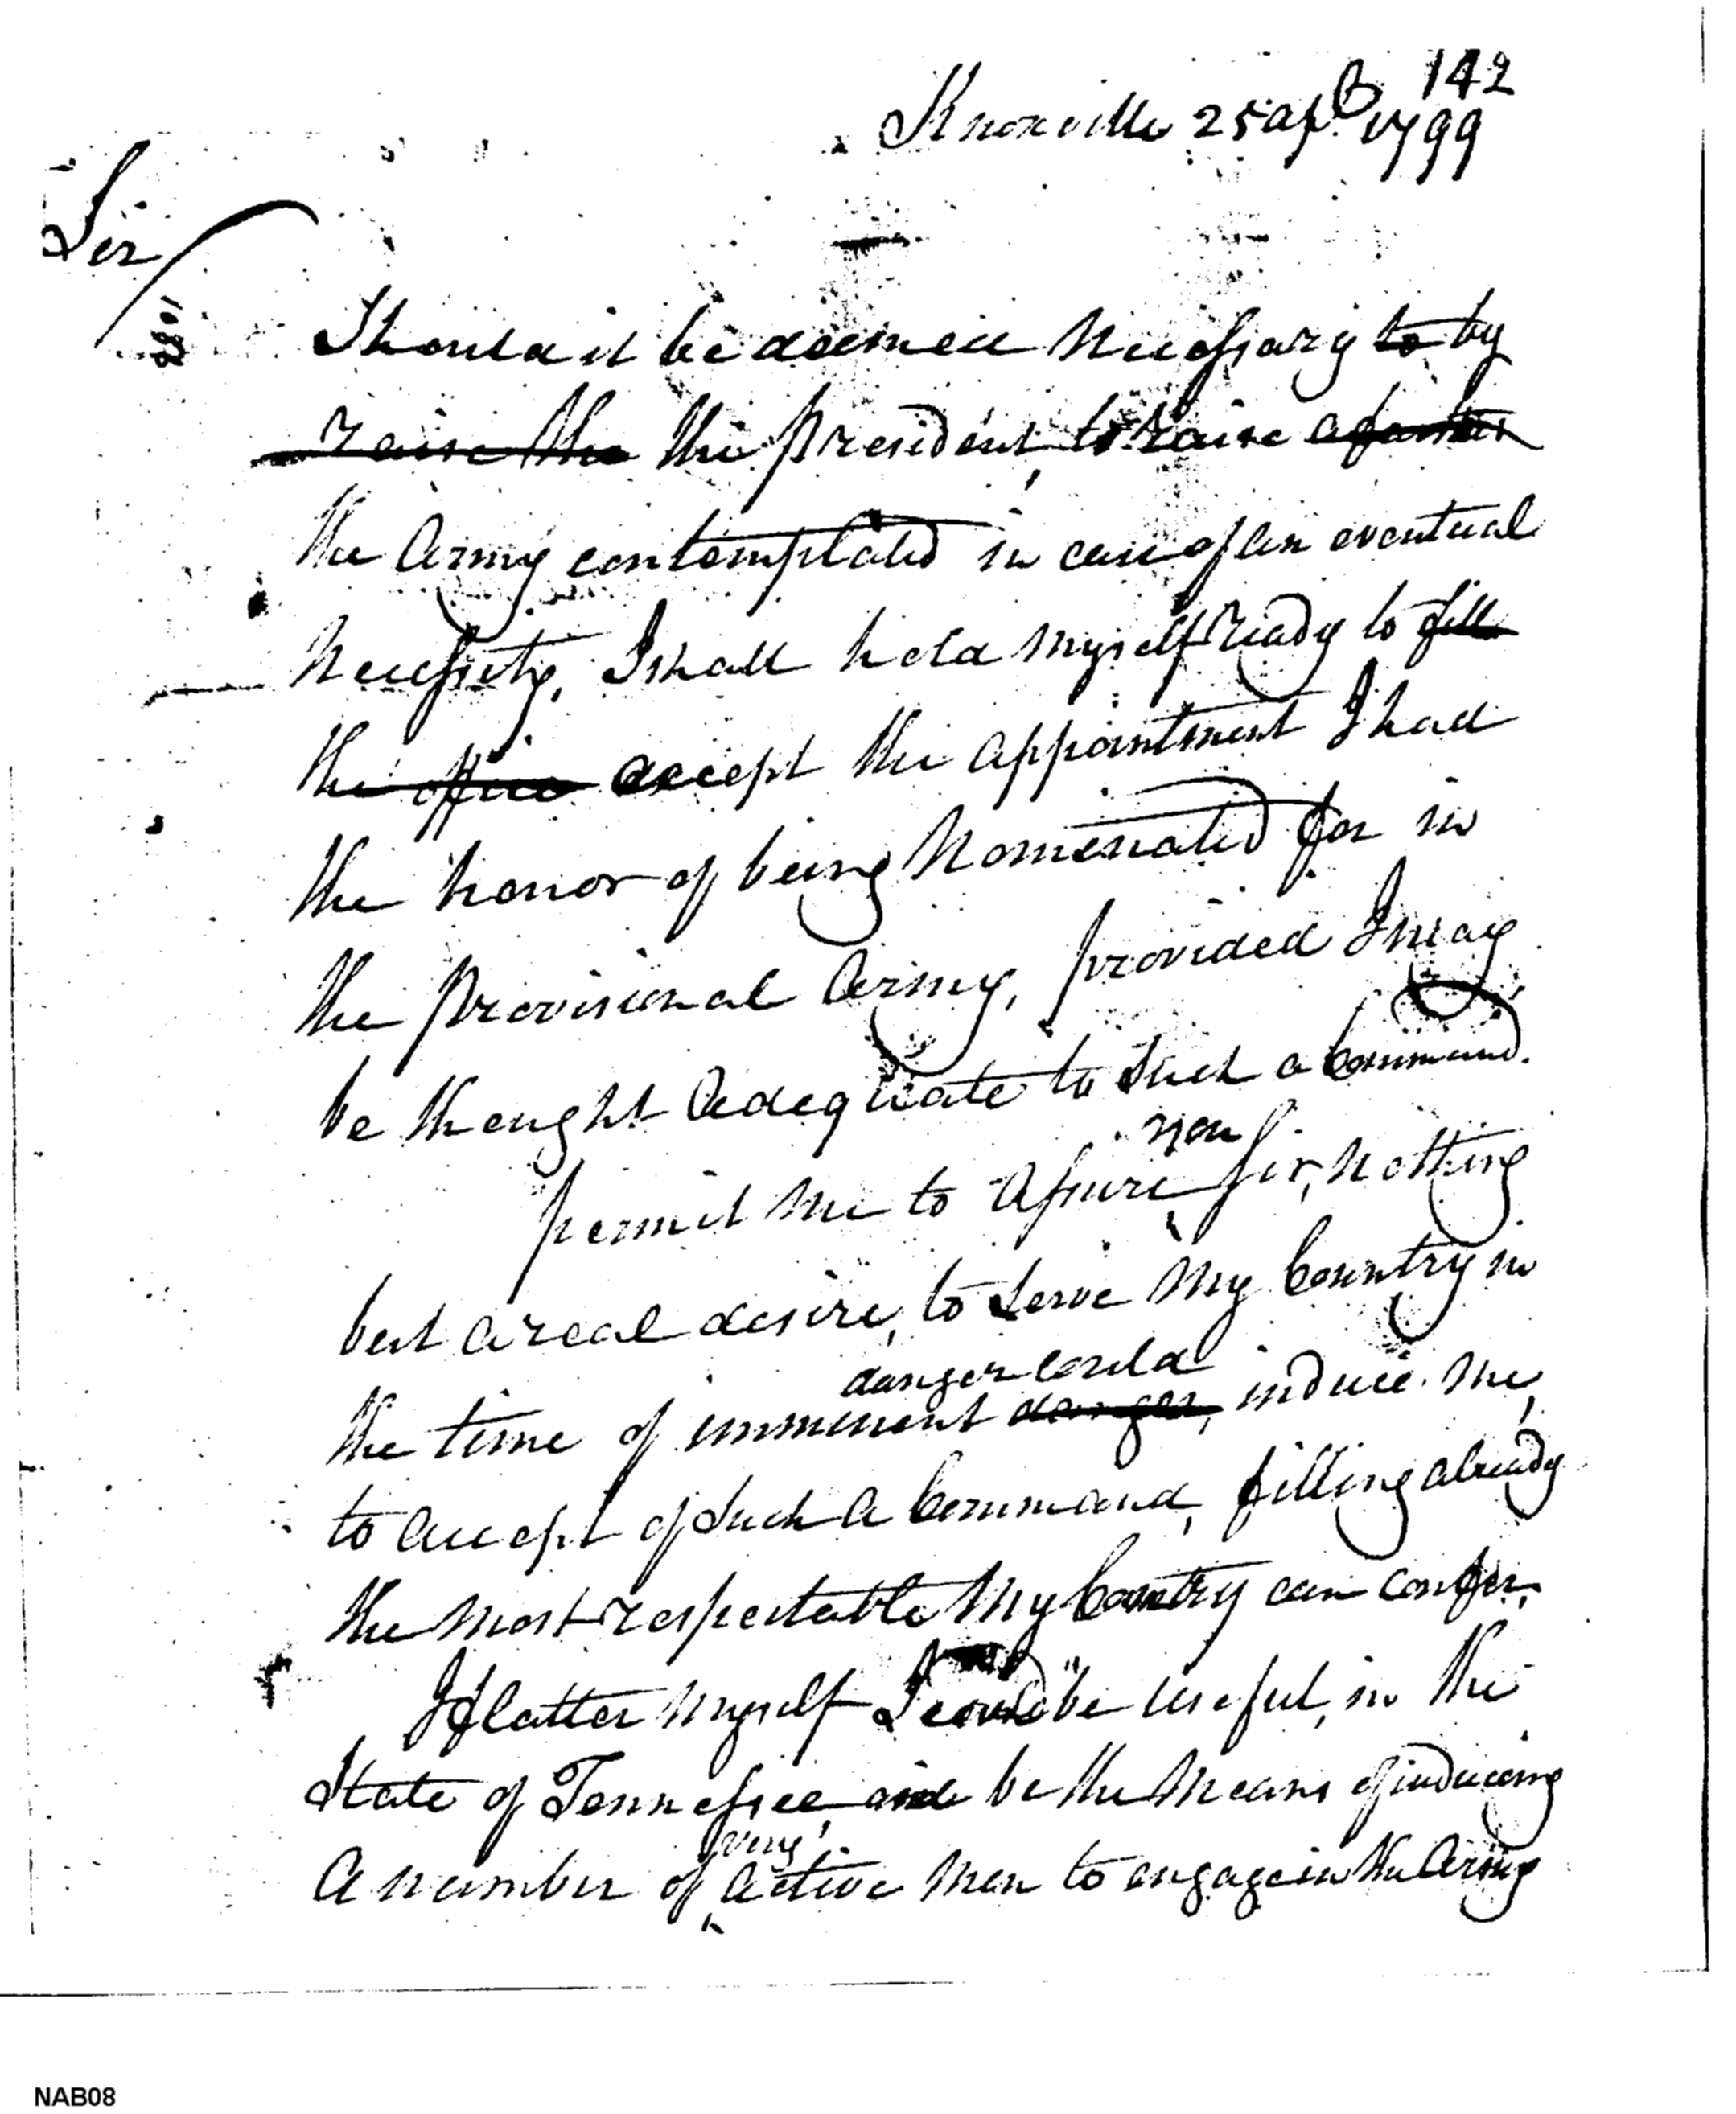 142
Knoxville 25 apl. 1799
Sir
Should it be deemed Necessary to by
raise the the president, to raise a
the Army contemplated in case of an eventual
Necessity, I shall hold myself ready to fill
the office accept the appointment I had
the honor of being Nominated for in
the provisional Army, provided I may
be thought Adequate to Such a Command.
you
permit me to Assure Sir, Nothing
but a real desire, to Serve My Country in
danger could
the time of imminent danger, induce me,
to accept of Such a Command, filling already
the most respectable My Country can confer.
I flatter myself I could be useful, in the
State of Tennessee, and be the Means of inducing
very
A number of active Men to engage in the Army
NAB08